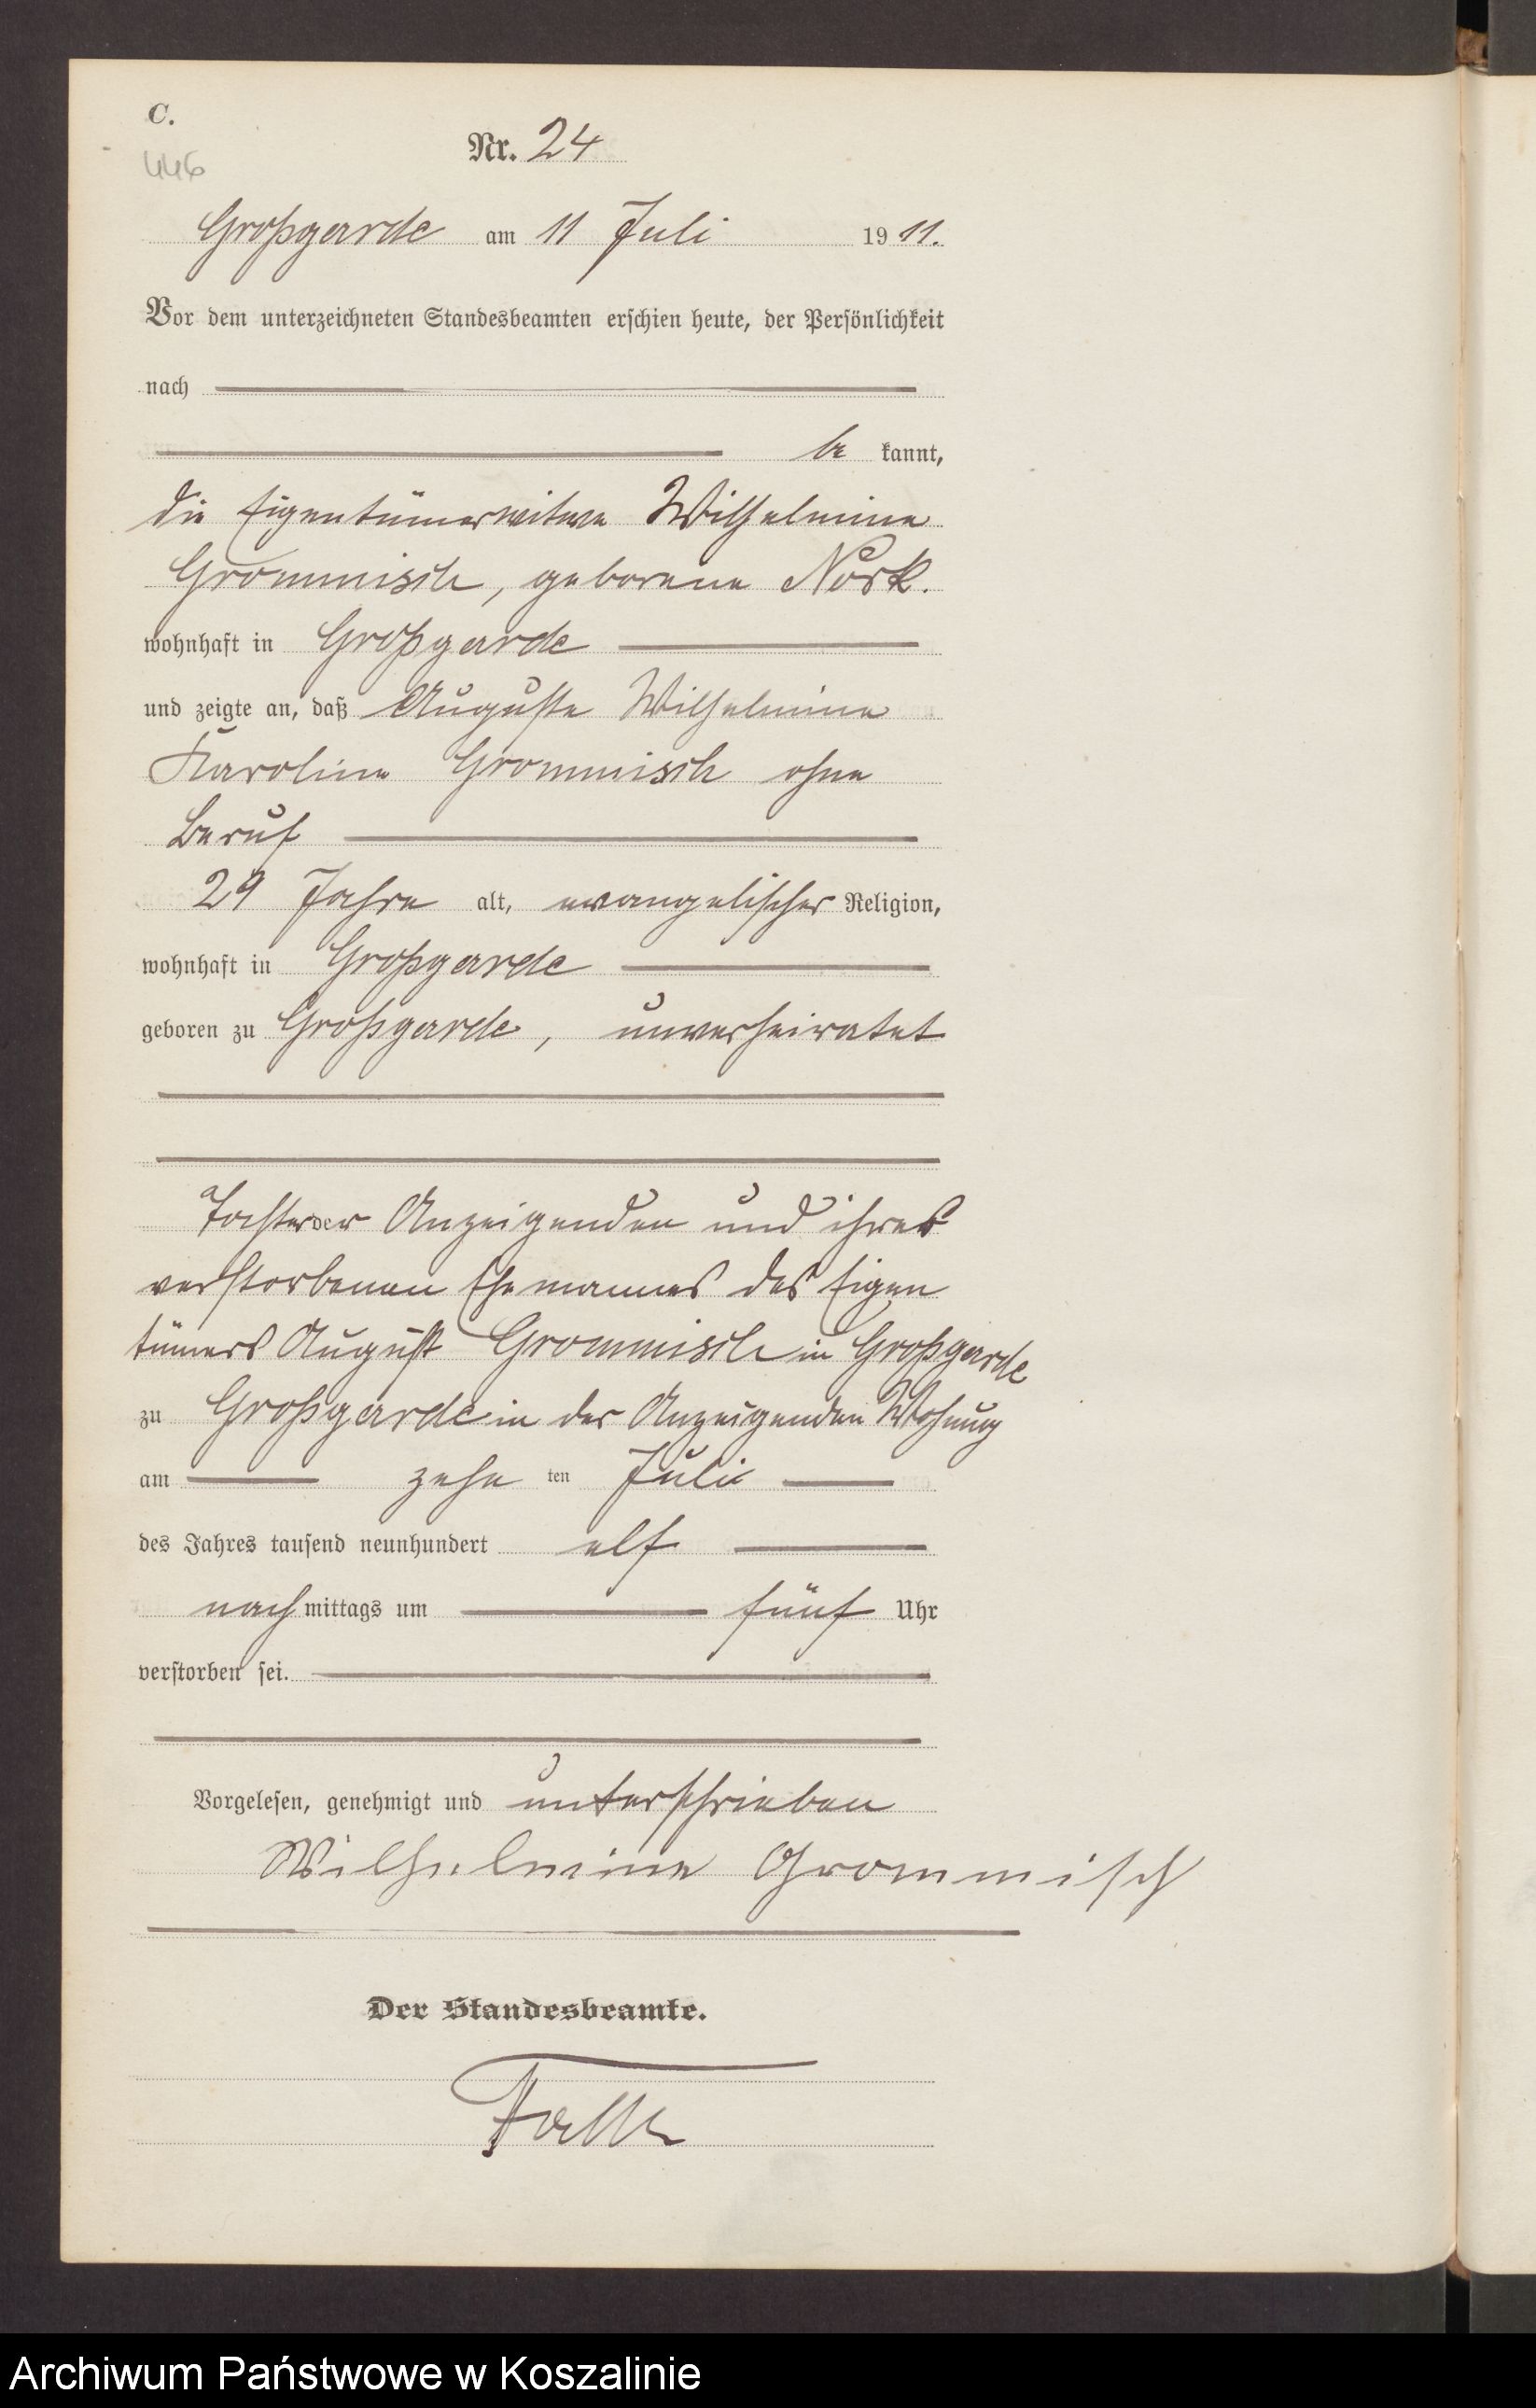 C.
446
Nr. 24
Großgarde am 11 Juli 1911.
Vor dem unterzeichneten Standesbeamten erschien heute, der Persönlichkeit
nach
be kannt,
die Eigentümerwitwe Wilhelmine
Grommisch, geborene Nork.
wohnhaft in Großgarde
und zeigte an, daß Auguste Wilhelmine
Karoline Grommisch ohne
Beruf
29 Jahre alt, evangelischer Religion,
wohnhaft in Großgarde
geboren zu Großgarde, unverheiratet
Tochter der Anzeigenden und ihres
verstorbenen Ehemannes des Eigen
tümers August Grommisch in Großgarde
zu Großgarde in der Anzeigenden Wohnung
am zehn ten Juli
des Jahres tausend neunhundert elf
nach mittags um fünf Uhr
verstorben sei.
Vorgelesen, genehmigt und unterschrieben
Wilhelmine Grommisch
Der Standesbeamte.
Archiwum Państwowe w Koszalinie